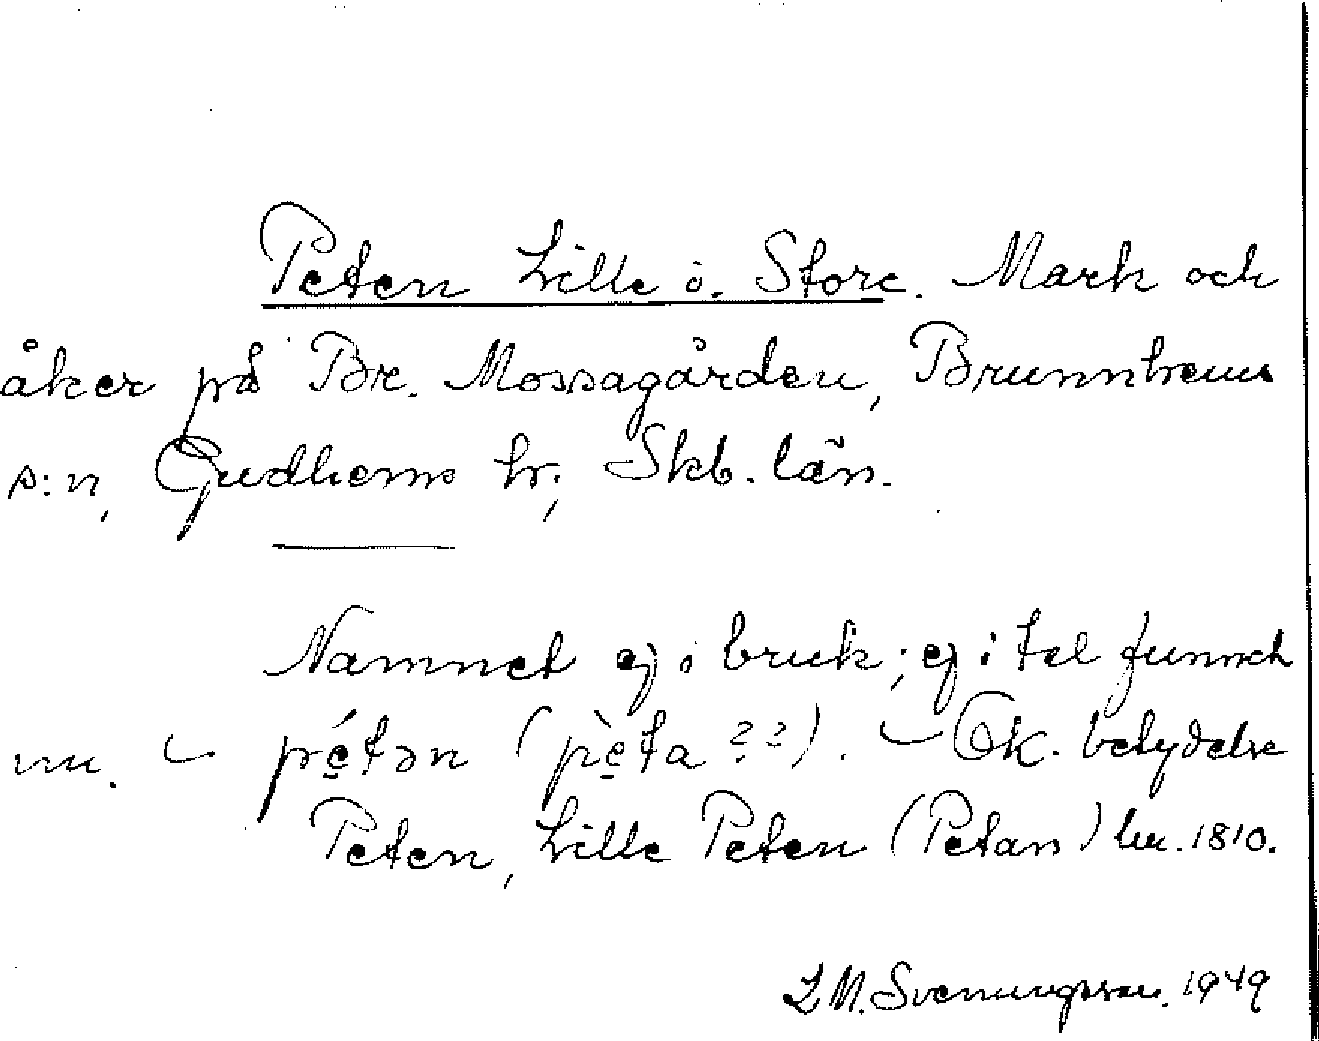 Peten Lille o. Store. Mark och
åker på Br. Mossagården, Brunnhems
s:n, Gudhems hr, Skb. län.
Namnet ej i bruk; ej i tal funnet
nu. – pé̱tən (pè̱ta ??). – Ok. betydelse
Peten, Lille Peten (Petan) lm. 1810.
L M. Svenungsson. 1949